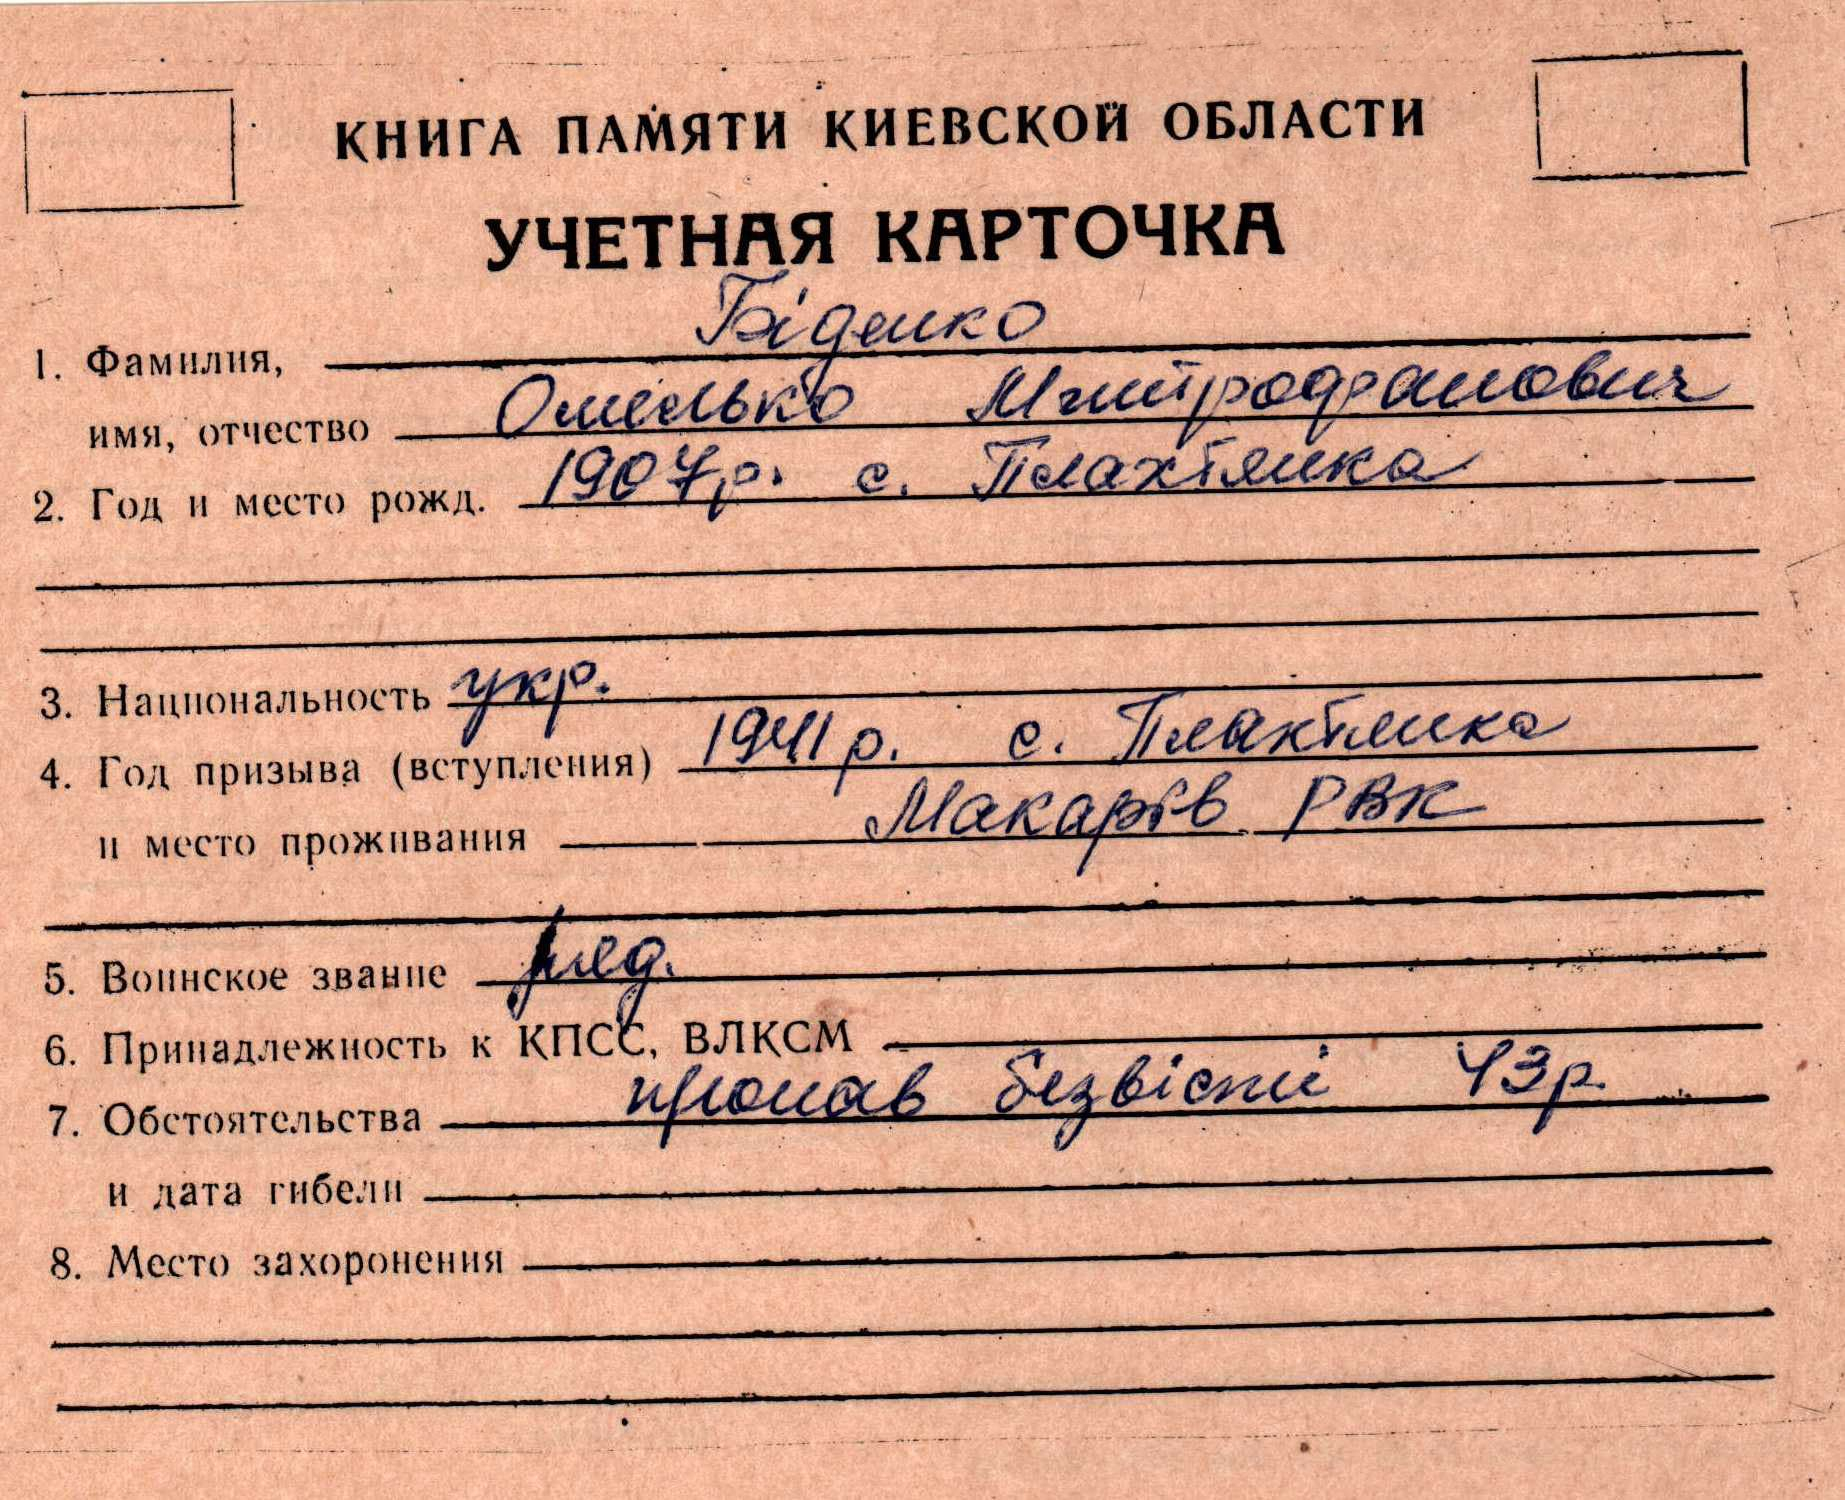 КНИГА ПАМЯТИ КИЕВСКОЙ ОБЛАСТИ
УЧЕТНАЯ КАРТОЧКА
1. Фамилия, Біденко
имя, отчество Омелько Митрофанович
2. Год и место рожд. 1907р. с. Плахтянка
3. Национальность укр.
4. Год призыва (вступления) 1941 р. с. Плахтянка
и место проживания Макарів РВК
5. Воинское звание ряд.
6. Принадлежность к КПСС, ВЛКСМ
7. Обстоятельства пропав безвісти 43р.
и дата гибели
8. Место захоронения